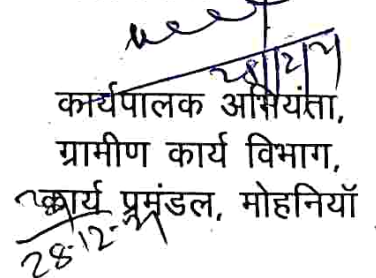 कार्यपालक अभियंता,
ग्रामीण कार्य विभाग,
कार्य प्रमंडल, मोहनियॉ
28.12.21